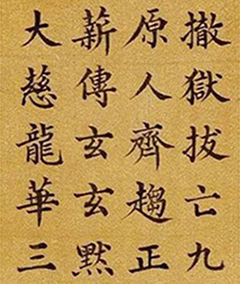 撤獄拔亡九
原人齊趨正
薪傳玄玄默
大慈龍華三